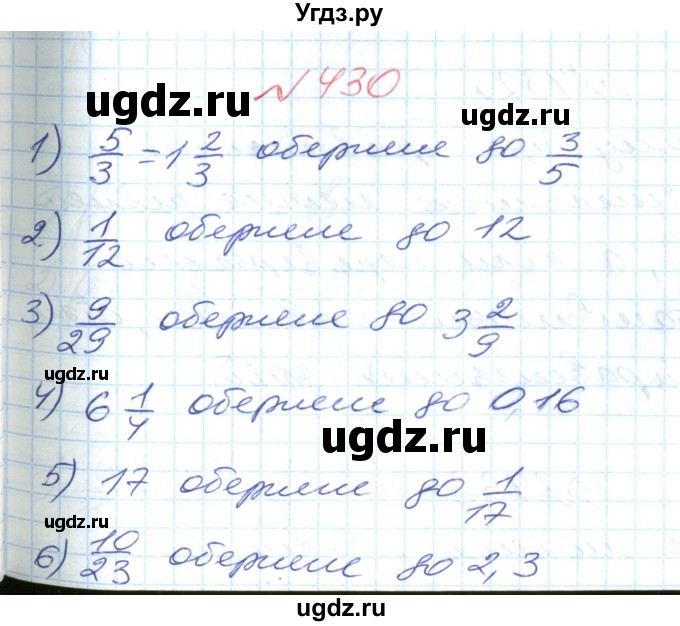 Угдз.ру
№ 430
ugdz.ru ugdz.ru
1) 5/3 = 1 2/3 обернене до 3/5
2) 1/12 обернене до 12
3) 9/29 обернене до 3 2/9
ugdz.ru
4) 6 1/4 обернене до 0,16
ugdz.ru
5) 17 обернене до 1/17
ugdz.ru
6) 10/23 обернене до 2,3
ugdz.ru